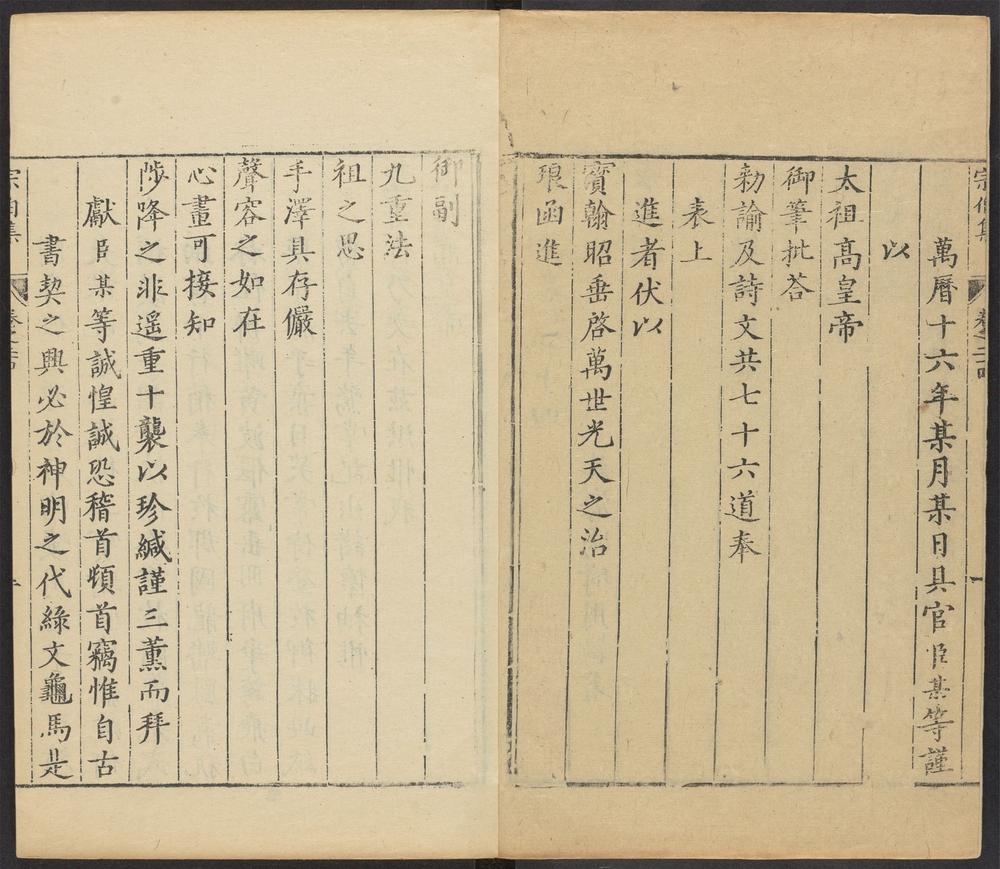 宗伯集
卷之二十四
一
萬曆十六年某月某日具官臣某等謹
以
太祖高皇帝
御筆批荅
勑諭及詩文共七十六道奉
表上
進者伏以
寳翰昭垂啓萬世光天之治
琅函進
御副
九重法
祖之思
手澤具存儼
聲容之如在
心畫可接知
陟降之非遥重十襲以珍緘謹三薰而拜
獻臣某等誠惶誠恐稽首頓首竊惟自古
書契之興必於神明之代綠文龜馬是
宗伯集